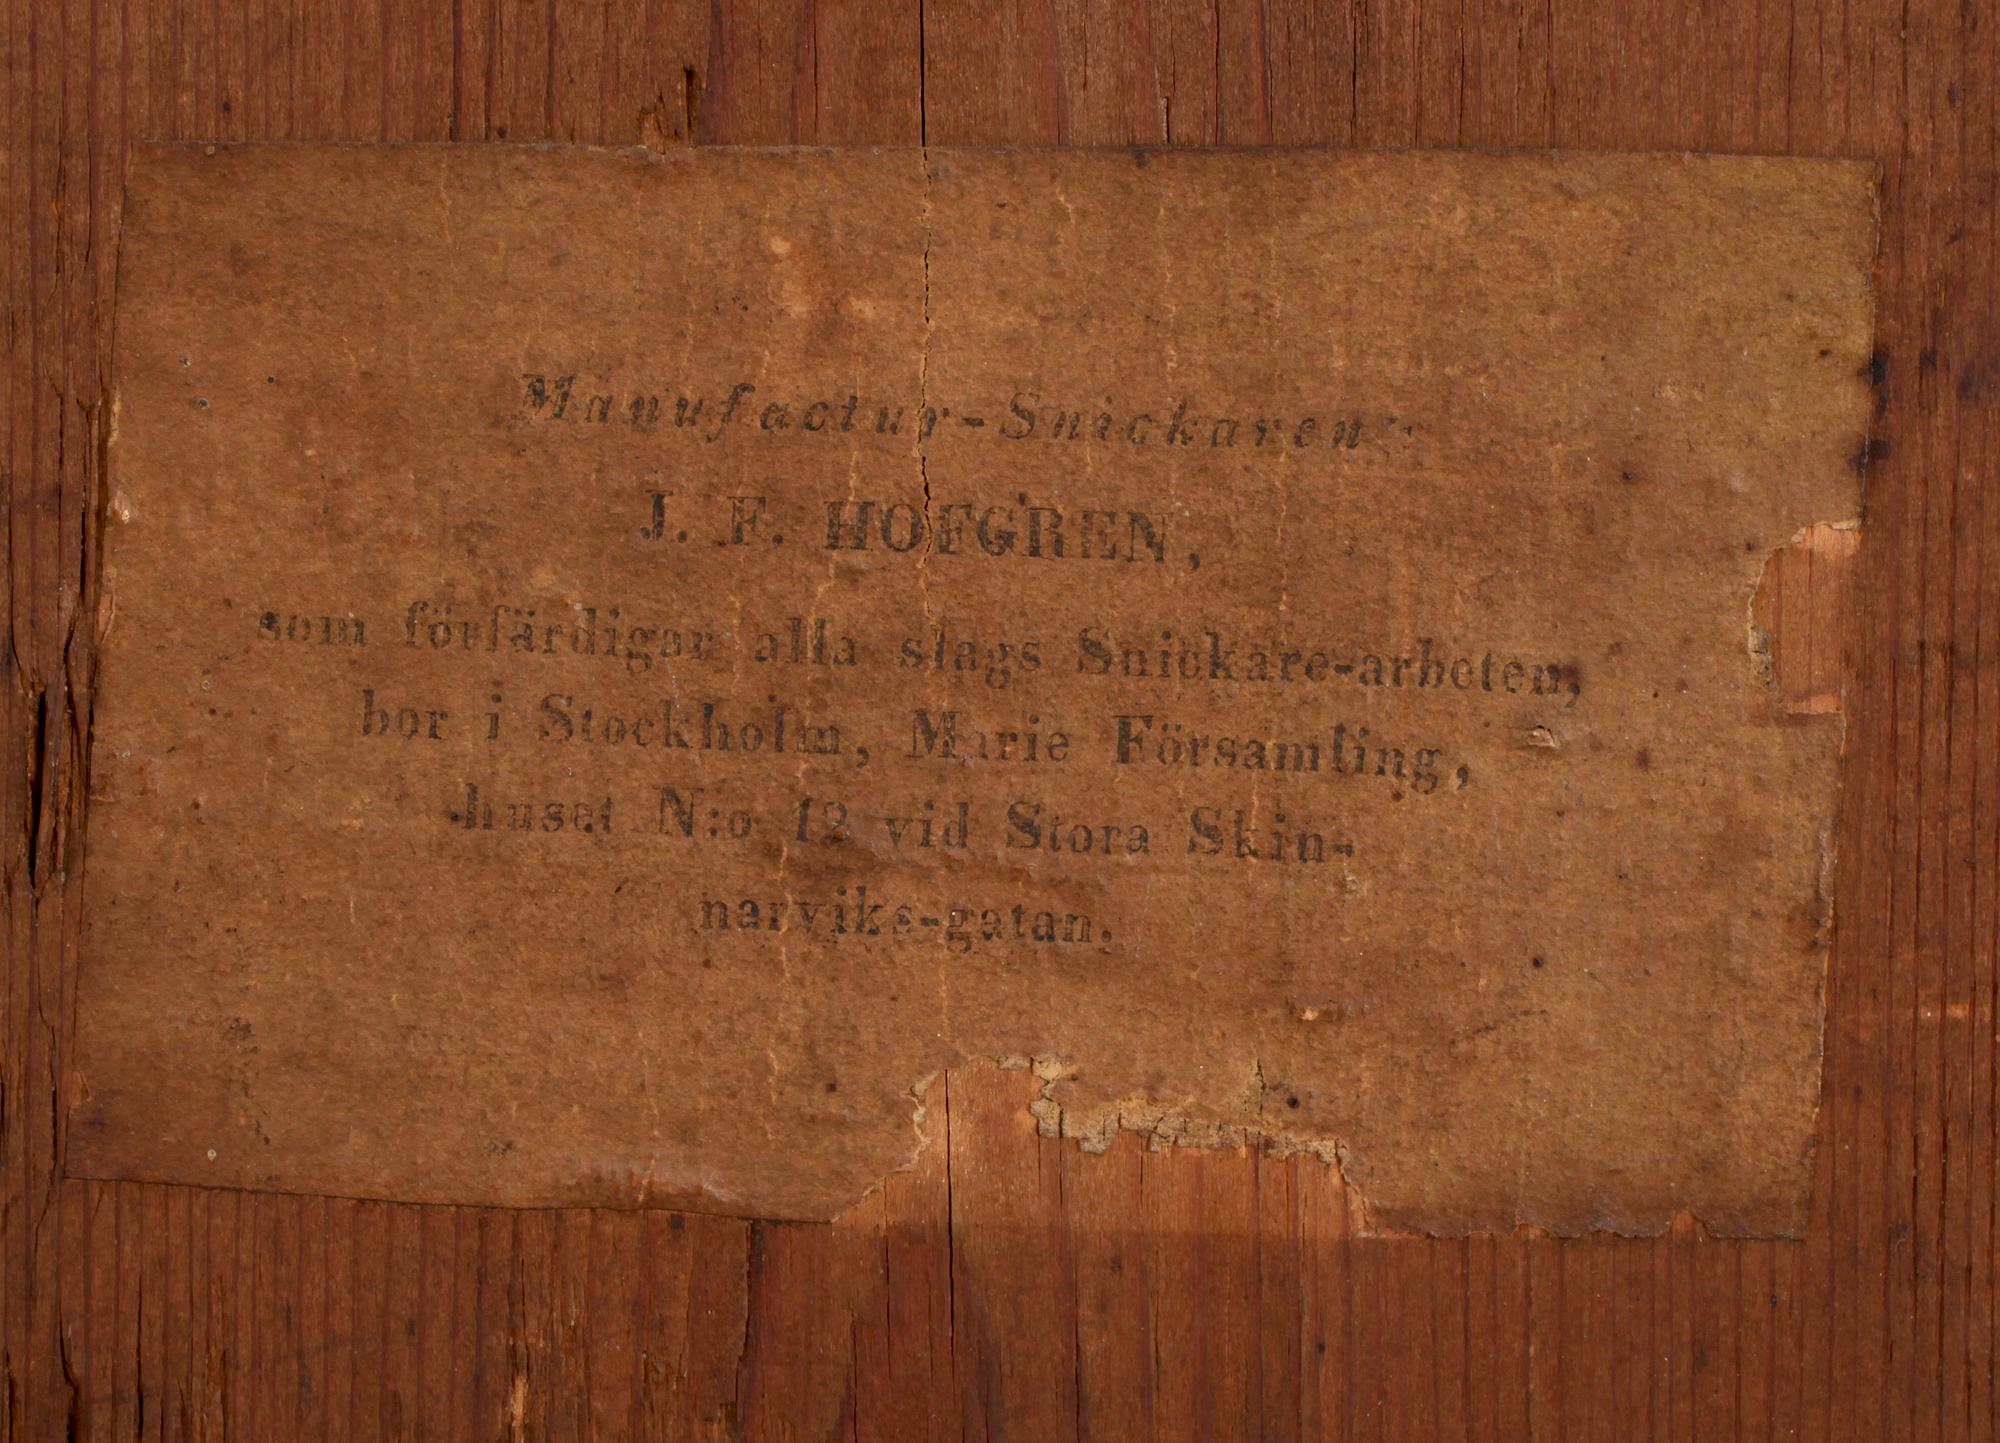 Manufactur-Snickaren
J. F. HOFGREN,
som förfärdigar alla slags Snickare-arbeten,
bor i Stockholm, Marie Församling,
huset N:o 12 vid Stora Skin-
narviks-gatan.